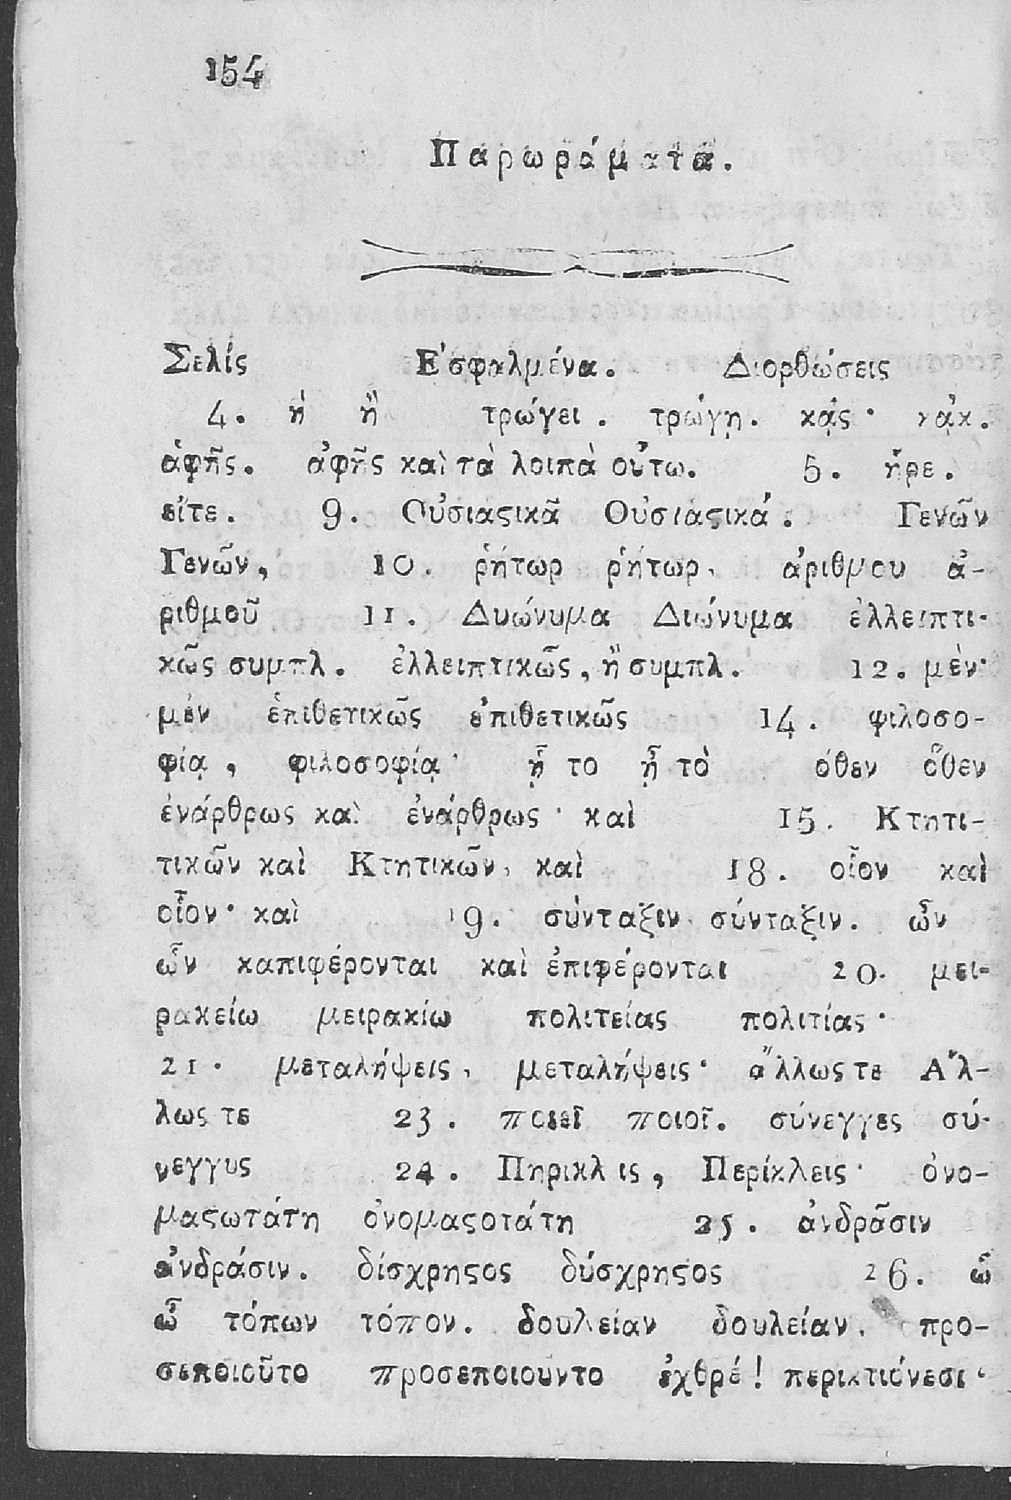 154
Παρωράματα.
Σελίς Ἐσφαλμένα. Διορθώσεις
4. ἡ ἢ τρώγει. τρώγῃ. κᾀς· κᾀκ.
ἁφῆς. ἀφῆς καὶ τὰ λοιπὰ οὕτω. 5. ἥρε.
εἴτε. 9. Οὐσιαϛικᾶ Οὐσιαϛικά. Γενῶν
Γενῶν, 10. ῥήτωρ ῥήτωρ, ἀριθμου ἀ-
ριθμοῦ 11. Δυώνυμα Διώνυμα ἐλλειπτι-
κῶς συμπλ. ἐλλειπτικῶς, ἢ συμπλ. 12. μὲν·
μὲν ἑπιθετικῶς ἐπιθετικῶς 14. φιλοσο-
φίᾳ, φιλοσοφίᾳ· ᾗ το ᾗ τὸ όθεν ὅθεν
ἐνάρθρως καὶ ἐνάρθρως· καὶ 15. Κτητι-
τικῶν καὶ Κτητικῶν, καὶ 18. οἷον καὶ
οἷον· καὶ 19. σύνταξιν σύνταξιν. ὧν
ὧν καπιφέρονται καὶ ἐπιφέρονται 20. μει-
ρακείω μειρακίω πολιτείας πολιτίας·
21. μεταλήψεις, μεταλήψεις· ἄλλωϛε Ἄλ-
λωϛε 23. ποιεῖ ποιοῖ. σύνεγγες σύ-
νεγγυς 24. Πηρικλ ις, Περίκλεις· ὀνο-
μαϛωτάτη ὀνομαϛοτάτη 25. ἀνδρᾶσιν
ἀνδράσιν. δίσχρηϛος δύσχρηϛος 26. ὥ
ὦ τόπων τόπον. δουλείαν δουλείαν, προ-
σεποιοῦτο προσεποιουντο ἐχθρέ! περικτιόνεσι·